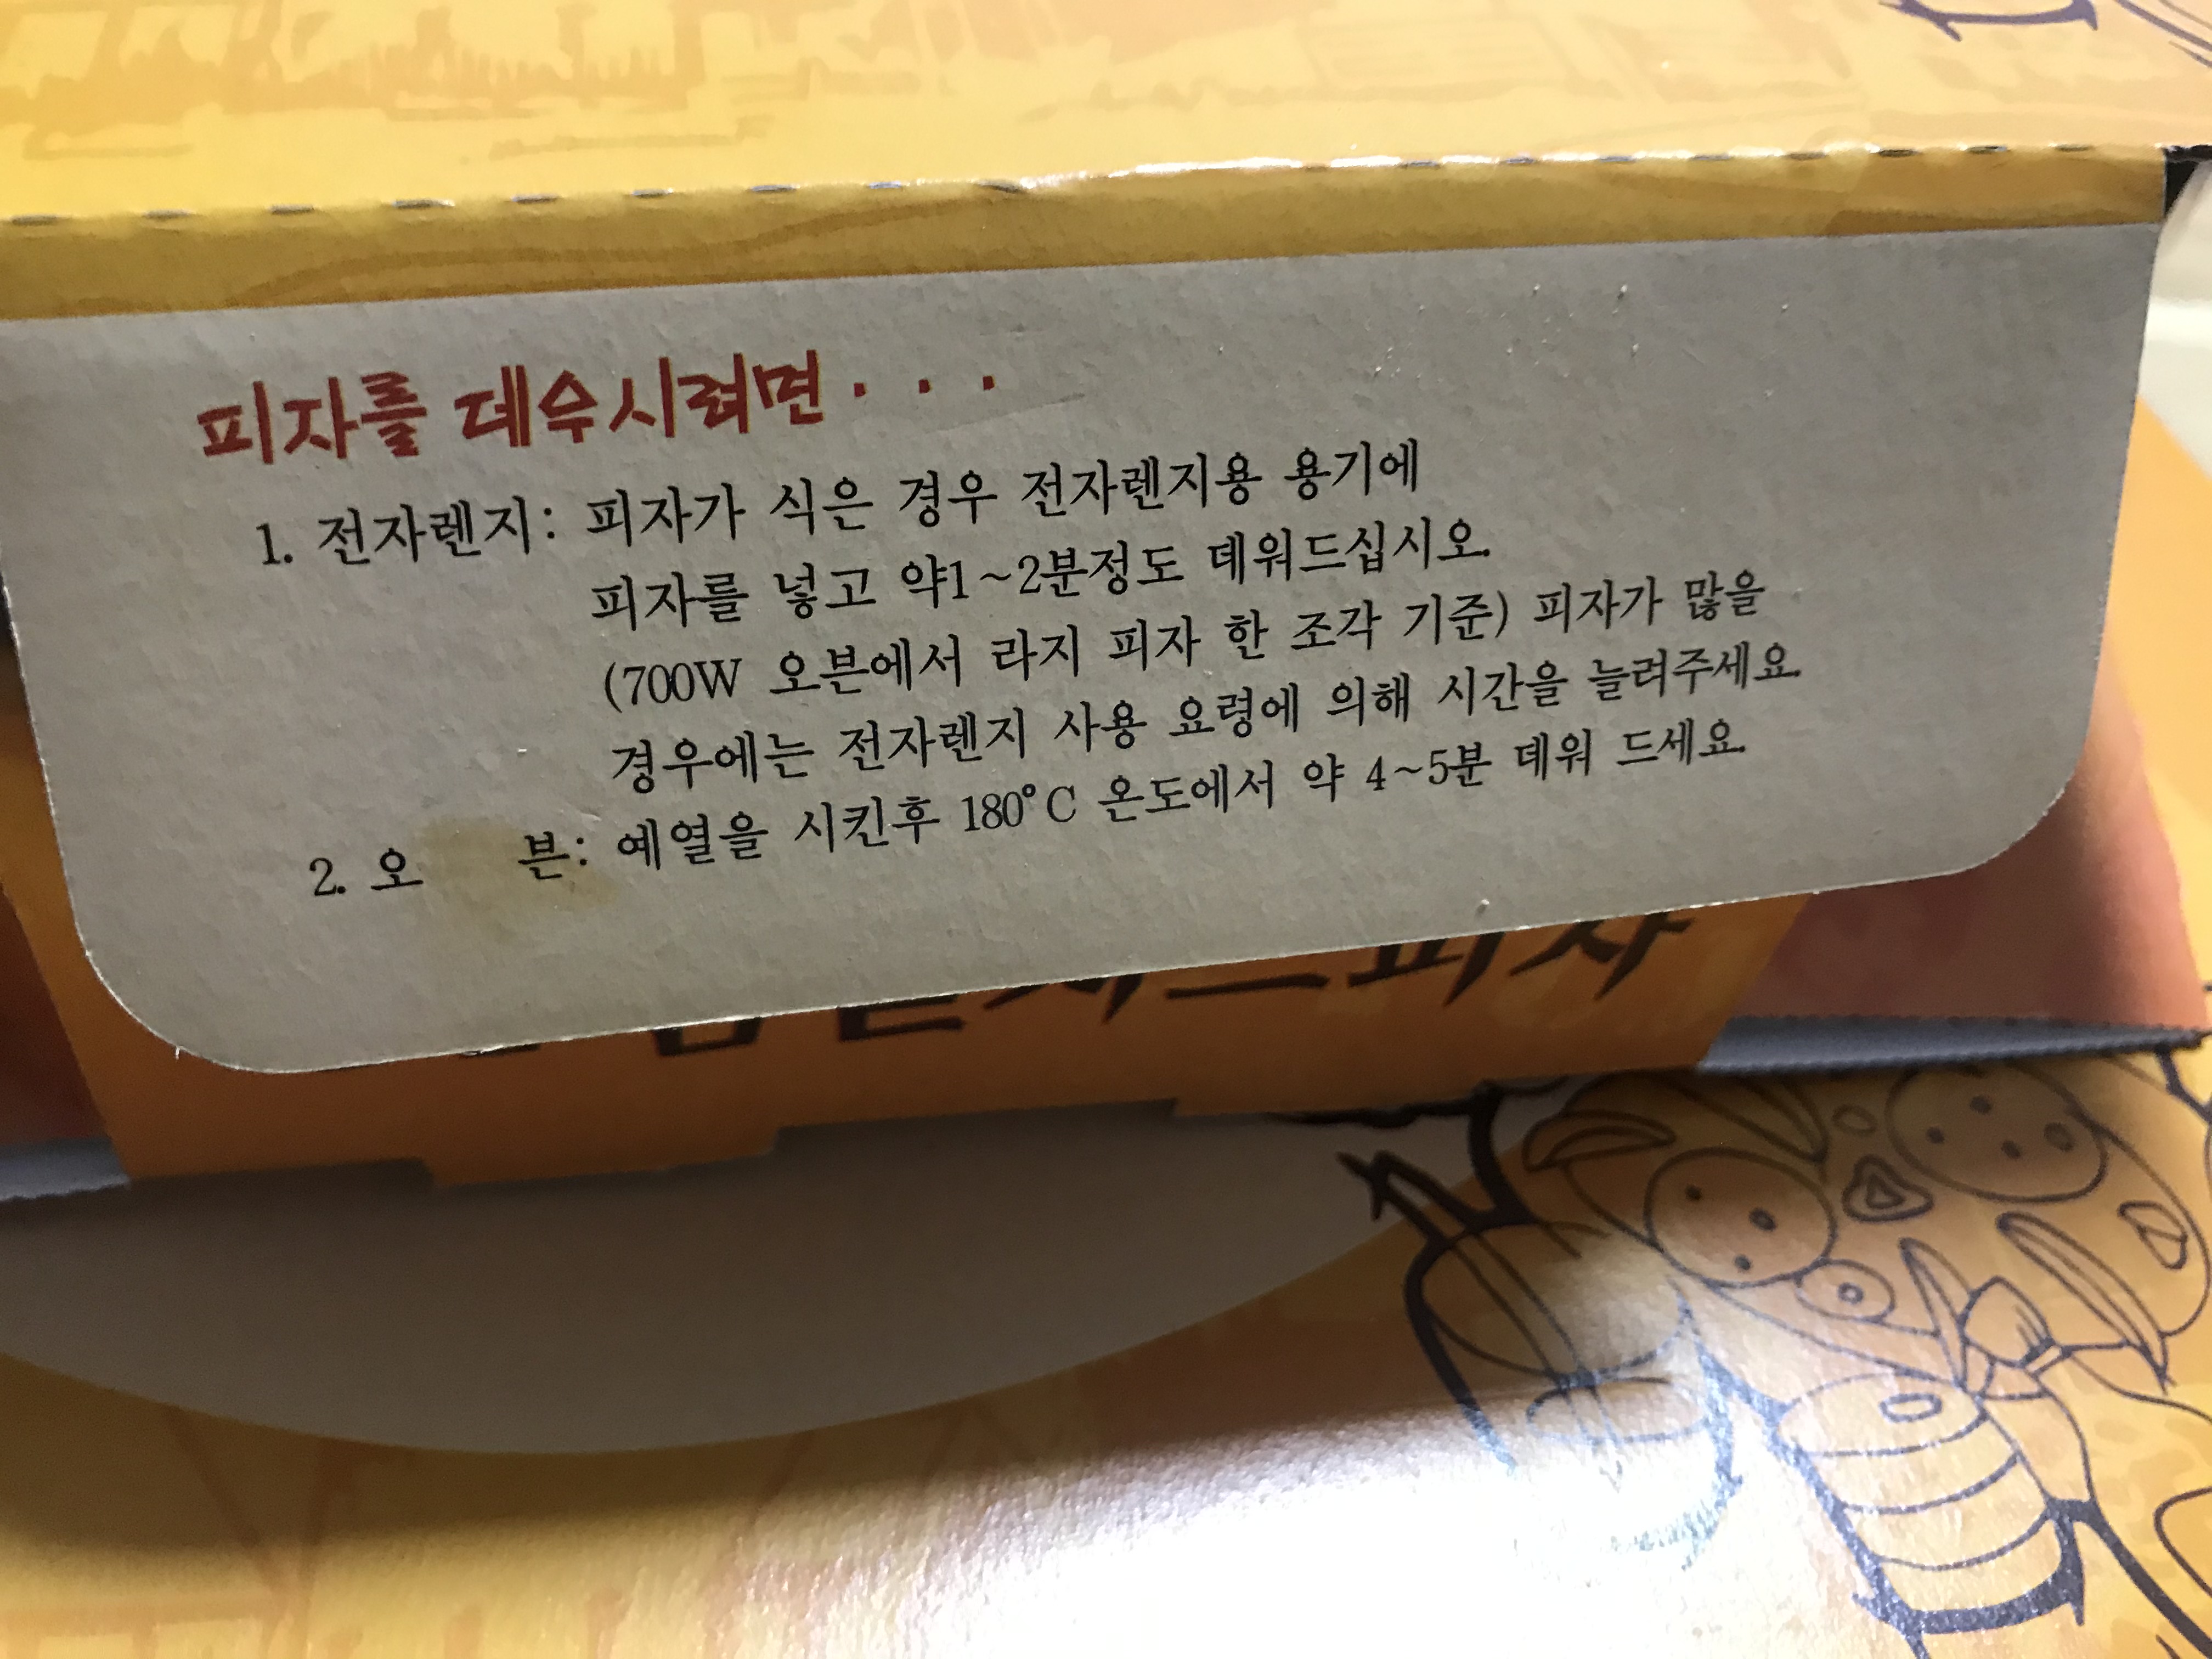 피자를 데우시려면 · · ·
1. 전자렌지: 피자가 식은 경우 전자렌지용 용기에
피자를 넣고 약1~2분정도 데워드십시오.
(700W 오븐에서 라지 피자 한 조각 기준) 피자가 많을
경우에는 전자렌지 사용 요령에 의해 시간을 늘려주세요.
2. 오 븐: 예열을 시킨후 180°C 온도에서 약 4~5분 데워 드세요.
피자